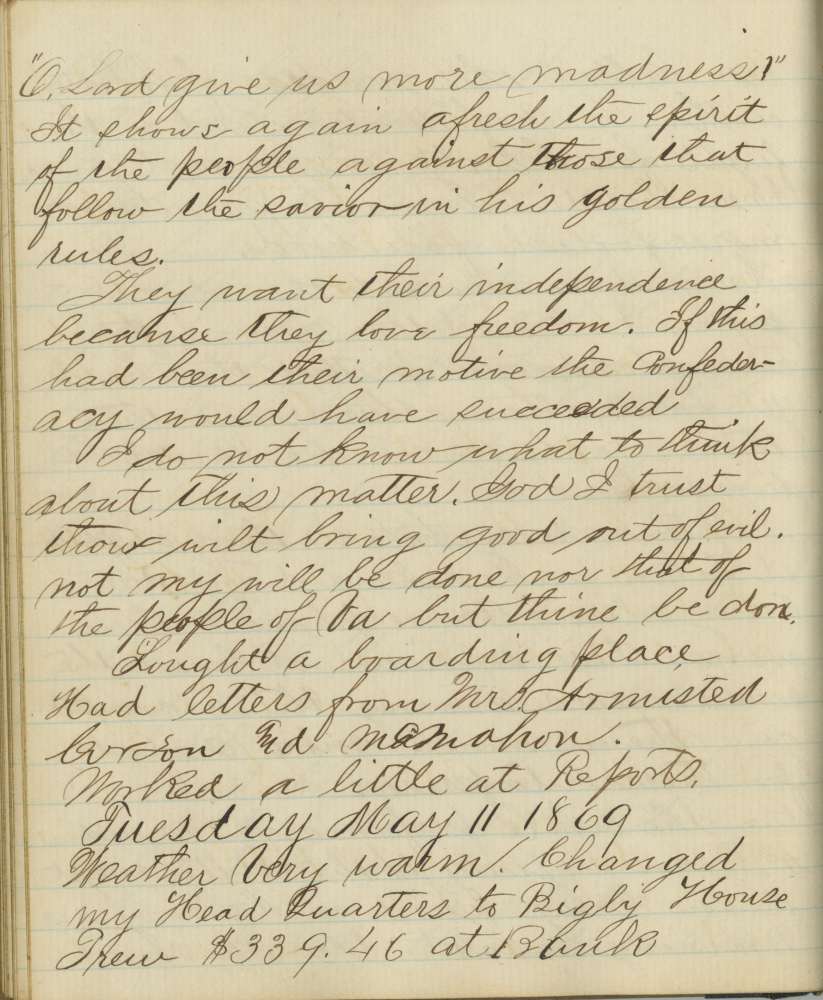 "O, Lord give us more madness!"
It shows again afresh the spirit
of the people against those that
follow the savior in his golden
rules.
They want their independence
because they love freedom. If this
had been their motive the Confeder-
acy would have succeeded
I do not know what to think
about this matter. God I trust
thou wilt bring good out of evil.
not my will be done nor that of
the people of Va but thine be done.
Sought a boarding place
Had letters from Mrs. Armisted
Carson and McMahon.
Worked a little at Reports.
Tuesday May 11 1869
Weather Very warm. Changed
my Head Quarters to Bigly House
Drew $339.46 at Bank